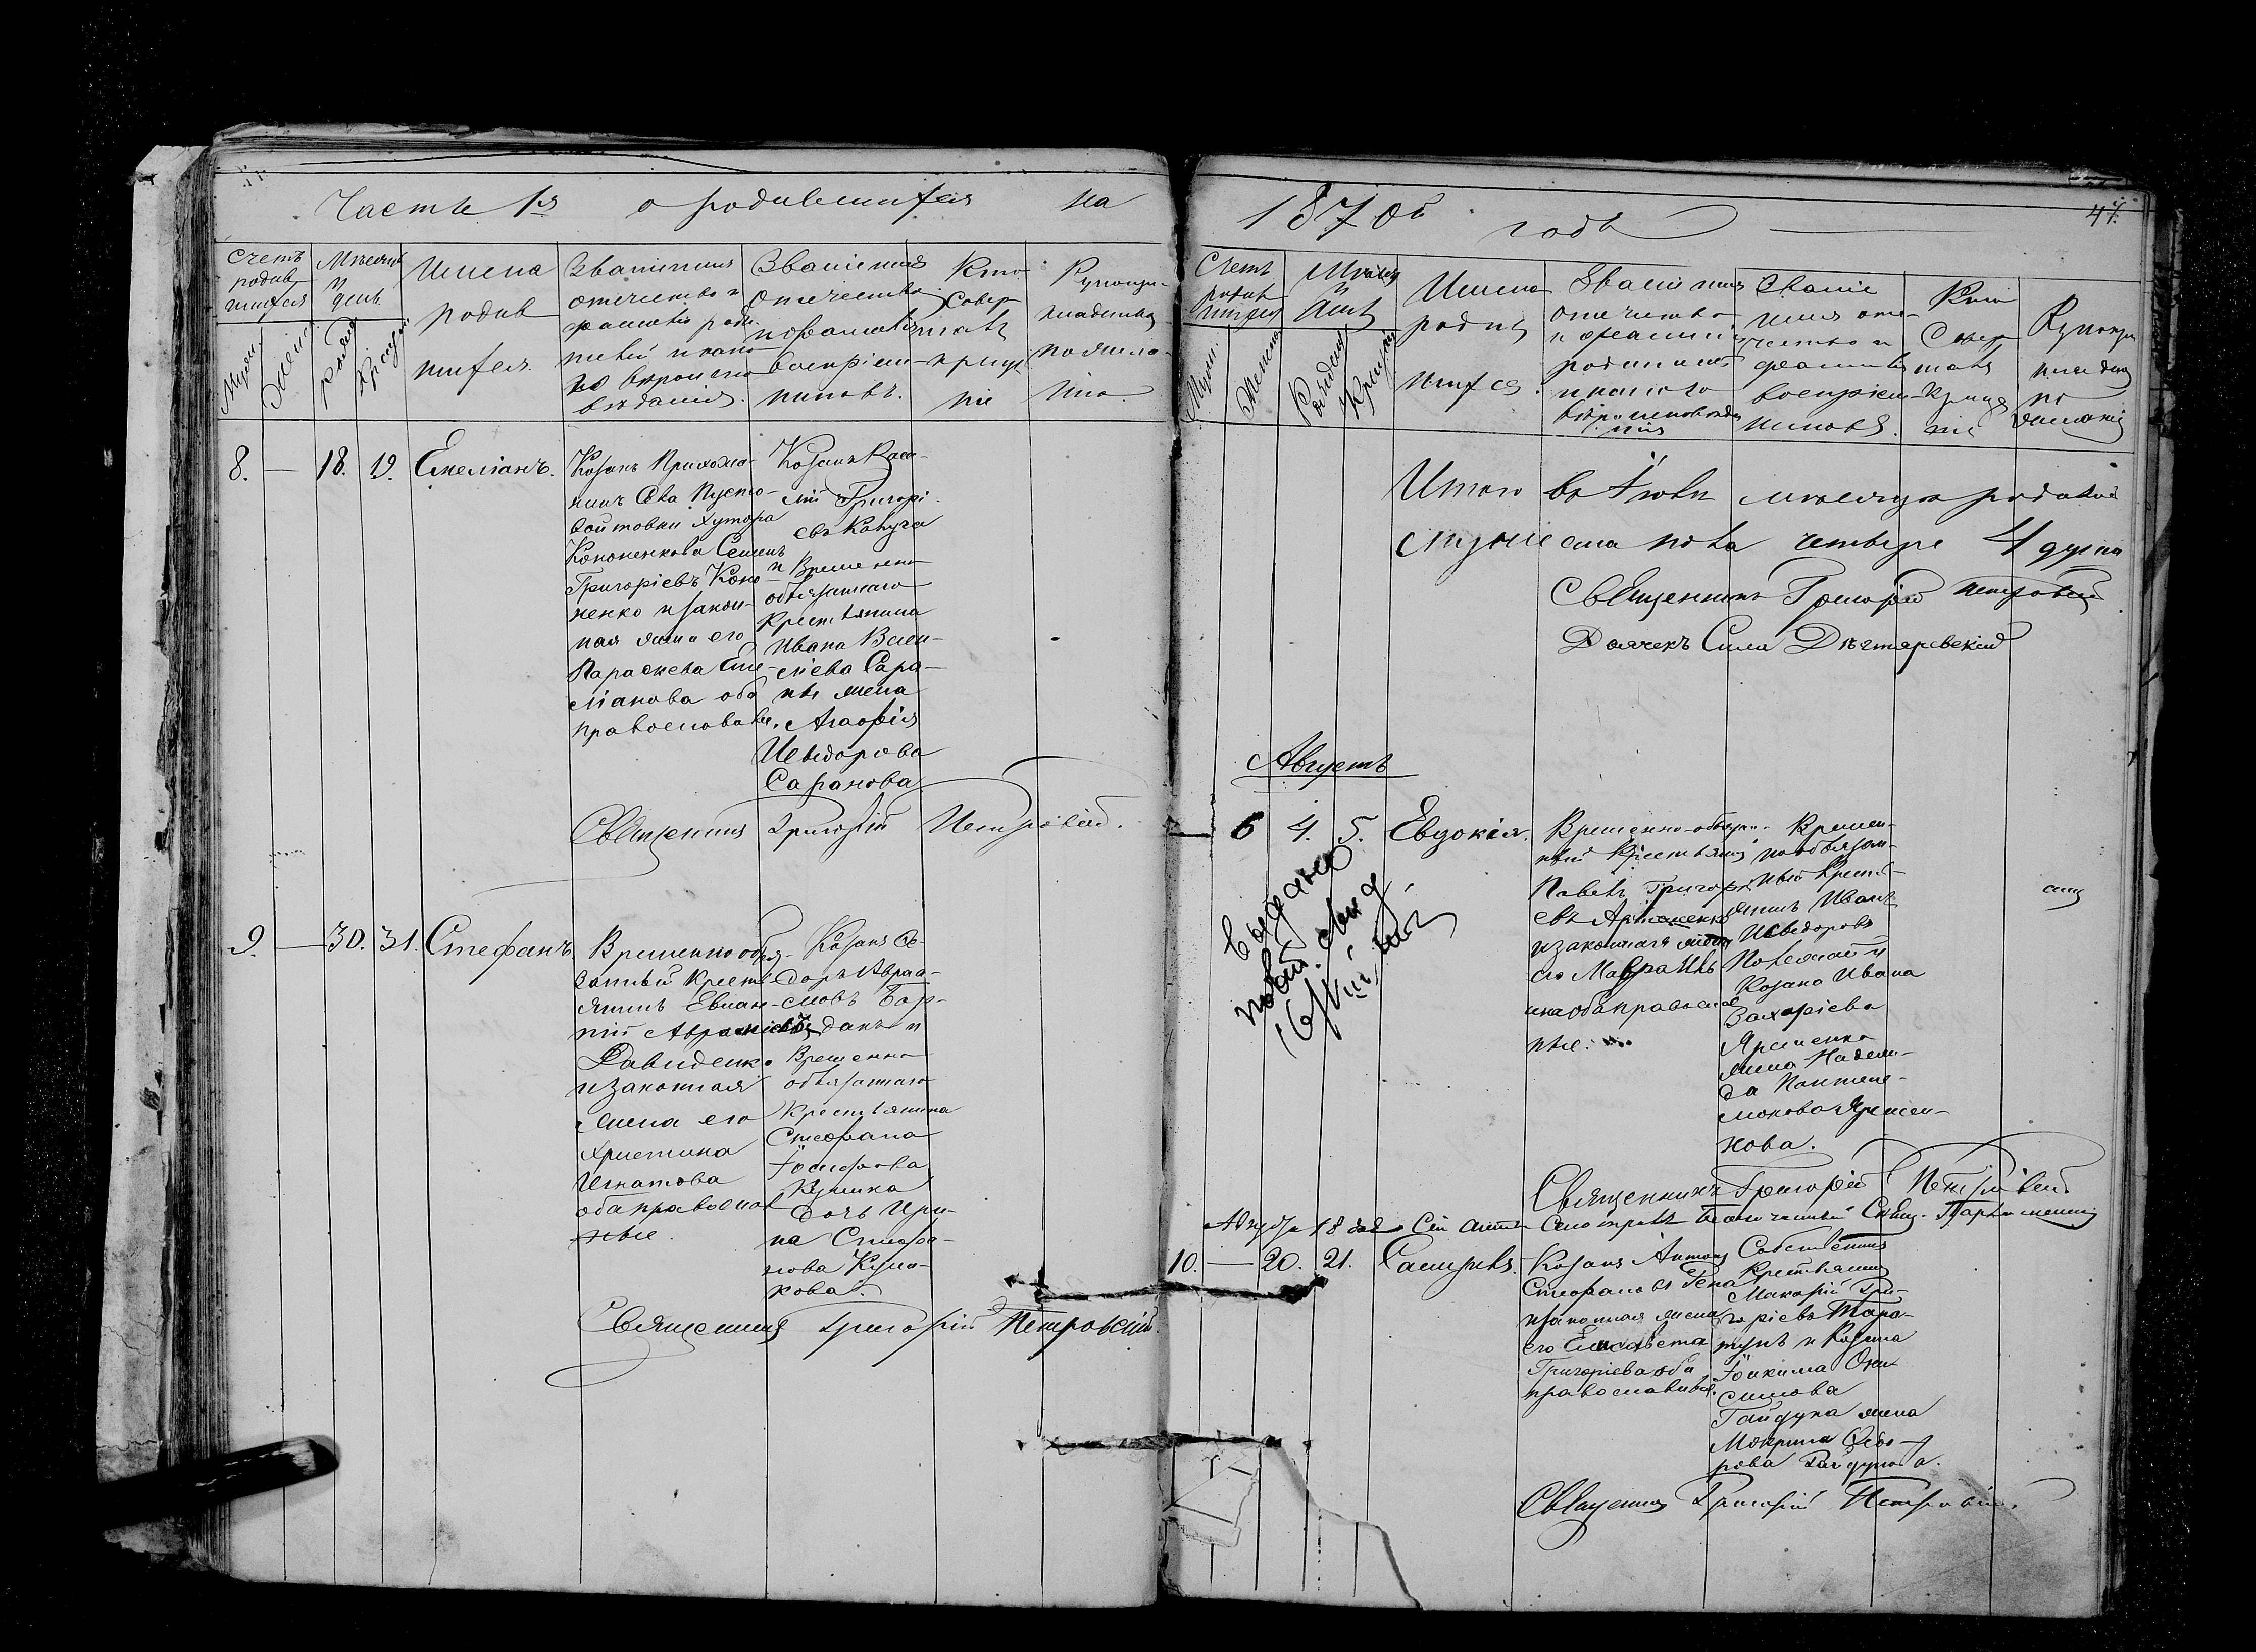 Часть 1я о родившихся на
Счетъ родив шихся
Мѣсяцъ и день
Имена родив шихся.
Званіе имя отечество и фамилія роди телей и како го вѣроиспо вѣданія.
Званіе имя отечество и фамилія воспріем никовъ.
Кто совер шалъ креще ніе
Рукопри кладство по желанію.
8. — 18. 19. Емеліанъ.
Козакъ Прихожа-
нинъ Села Пусто-
войтовки хутора
Кононенкова Семенъ
Григоріевъ Коно-
ненко и закон-
ная жена его
Параскева Еме-
ліанова оба
православные.
Козакъ Васи-
лій Григорі-
евъ
и Временно
обязаннаго
Крестьянина
Ивана Васи-
лієва Сара-
ны жена
Агафія
Исидорова
Саранова
Священникъ Григорій Петровскій.
9. — 30. 31. Стефанъ.
Временнообя-
занный Кресть-
янинъ Евлам-
пій Аврамієвъ
Давиденко
и законная
жена его
Христина
Игнатова
оба православ
ные.
Козакъ Ѳе-
доръ Авраа-
мовъ Бог-
данъ и
Временно
обязаннаго
Крестьянина
Стефана
Іосифова
дочь Ири-
на Стефа-
нова
Священникъ Григорій Петровскій.
1870й годъ
47.
Счетъ родив шихся
Мѣсяцъ и день
Имена родив шихся.
Званіе имя отечество и фамилія родителей и какого вѣроисповѣда нія
Званіе имя оте чество и фамилія воспріем никовъ.
Кто совер шалъ креще ніе
Рукопри кладство по желанію
Итого въ Іюлѣ мѣсяцѣ родилось
мужеска пола четыре 4 души
Священникъ Григорій Петровскій
Дьячекъ Сила Дѣхтяревскій
Августъ
— 6 4. 5. Евдокія.
Временно-обязан-
ный Крестьянинъ
Павелъ Григорі-
евъ
и законная жена
его Мавра
оба православ
ные.
Времен-
нообязан-
ный Кресть-
янинъ Иванъ
Исидоровъ
и
Козака Ивана
Захаріева
Яременка
жена Надеж-
да Пантеле-
монова Яремен-
кова.
выдано
Священникъ Григорій Петровскій
10. — 20. 21.
Козакъ Антонъ
Стефановъ Гена
и законная жена
его Елисавета
Григоріева оба
православные.
Собственникъ
Крестьянинъ
Макарій Гри-
горіевъ Тара-
и Козака
Іоакима Они-
симова
Гайдука жена
Макрина Ѳедо-
рова Гайдукова.
Священникъ Григорій Петровскій.